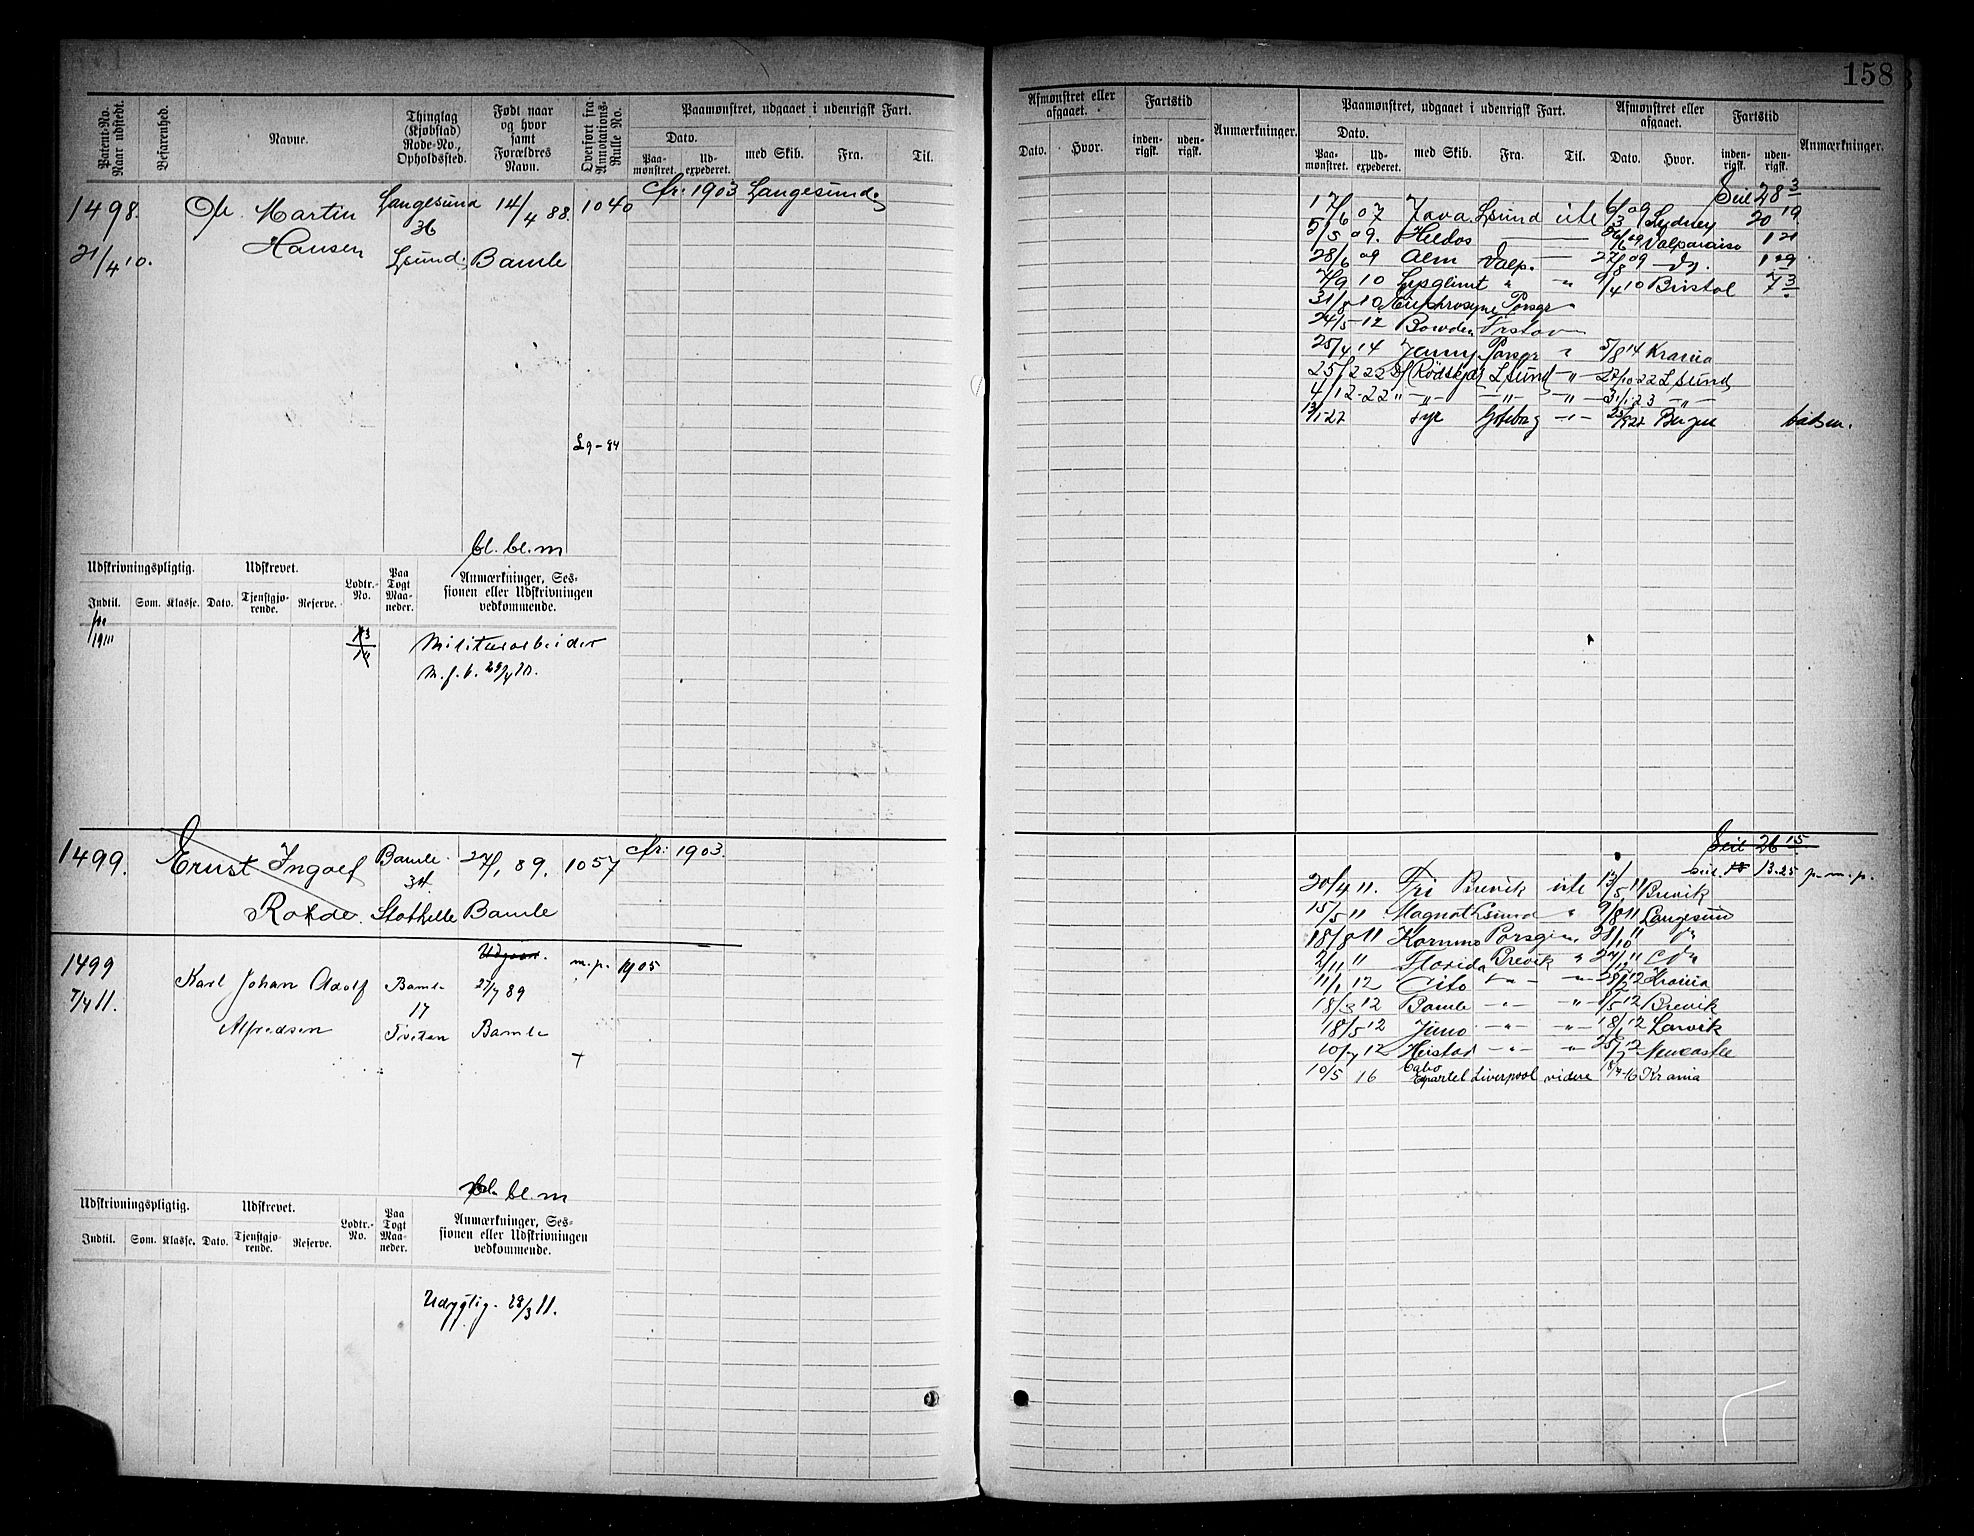 158
Patent-No. Naar udstedt.
Befarenhed.
Navne.
Thinglag (Kjøbstad) Rode-No., Opholdssted.
Født naar og hvor samt Forældres Navn.
Overført fra Annotations-Rulle No.
Paamønstret, udgaaet i udenrigsk Fart.
Dato.
Paamønstret. Udexpederet. med Skib. Fra. Til.
Afmønstret eller afgaaet. Fartstid Anmærkninger.
Dato. Hvor. indenrigsk. udenrigsk.
Paamønstret, udgaaet i udenrigsk Fart. Afmønstret eller afgaaet. Fartstid Anmærkninger.
Dato.
Paamønstret. Udexpederet. med Skib. Fra. Til. Dato. Hvor. indenrigsk. udenrigsk.
1498. Ole Martin Langesund 14/4 88. 1040 Chr: 1903 Langesund.
36
21/4 10. Hansen Lsund. Bamle
Lq-84
Seil 28 3
17/6 07 Java Lsund ute 6/3 09 Sydney 20 19
2/5 09. Hildos Valparaiso 1 21
28/6 09 Alm Valp. 27/8 09 Do. 1 29
10 Lysglimt " " 9/4 10 Bristol 7 3
31/8 10 Euphrosyne Porsgr "
24/5-12 Bowden
25/4 14 Jenny Porsgr " 5/8 14 Krania
25/2 22 (Rødskjæl) Lsund -"- 27/10 22 Lsund
4/12-22 " -"- -"- -"- 31/1-23 -"-
Fyr Gøteborg -"- Bergen baatsm.
bl. bl. m
Udskrivningspligtig. Udskrevet. Lodtr.-No. Paa Togt Maaneder. Anmærkninger, Sessionen eller Udskrivningen vedkommende.
Indtil. Som. Klasse. Dato. Tjenstgjørende. Reserve.
Militærarbeider
M. f. b. 29/4 10.
1499. Ernst Ingolf Bamle 27/1 89. 1057 Chr: 1903.
34
Rohde. Stathelle Bamle
Seil 26 15
13.25 p.m.p.
20/4 11. Fri Brevik ute 13/5 11 Brevik
15/5 11 Magnat Lsund " 9/8 11 Langesund
18/8 11 Kornmo Porsgr. 28/10 11
2/11 11 Florida Brevik " 11
11/1 12 Cito -"- -"- 12 Krania
18/3 12 Bamle -"- -"- 8/5 12 Brevik
18/5 12 Juno -"- -"- 12 Larvik
10/7 12 Heistad -"- -"- 12 Newcastle
10/5 16 Cabo Espartel Liverpool videre 16 Krania
1499 Udgaar. m.p. 1905
Karl Johan Adolf Bamle 27/7 89
7/4 11. 17
Alfredsen Tveten Bamle
bl. m
Udskrivningspligtig. Udskrevet. Lodtr.-No. Paa Togt Maaneder. Anmærkninger, Sessionen eller Udskrivningen vedkommende.
Indtil. Som. Klasse. Dato. Tjenstgjørende. Reserve.
Udygtig. 28/3 11.